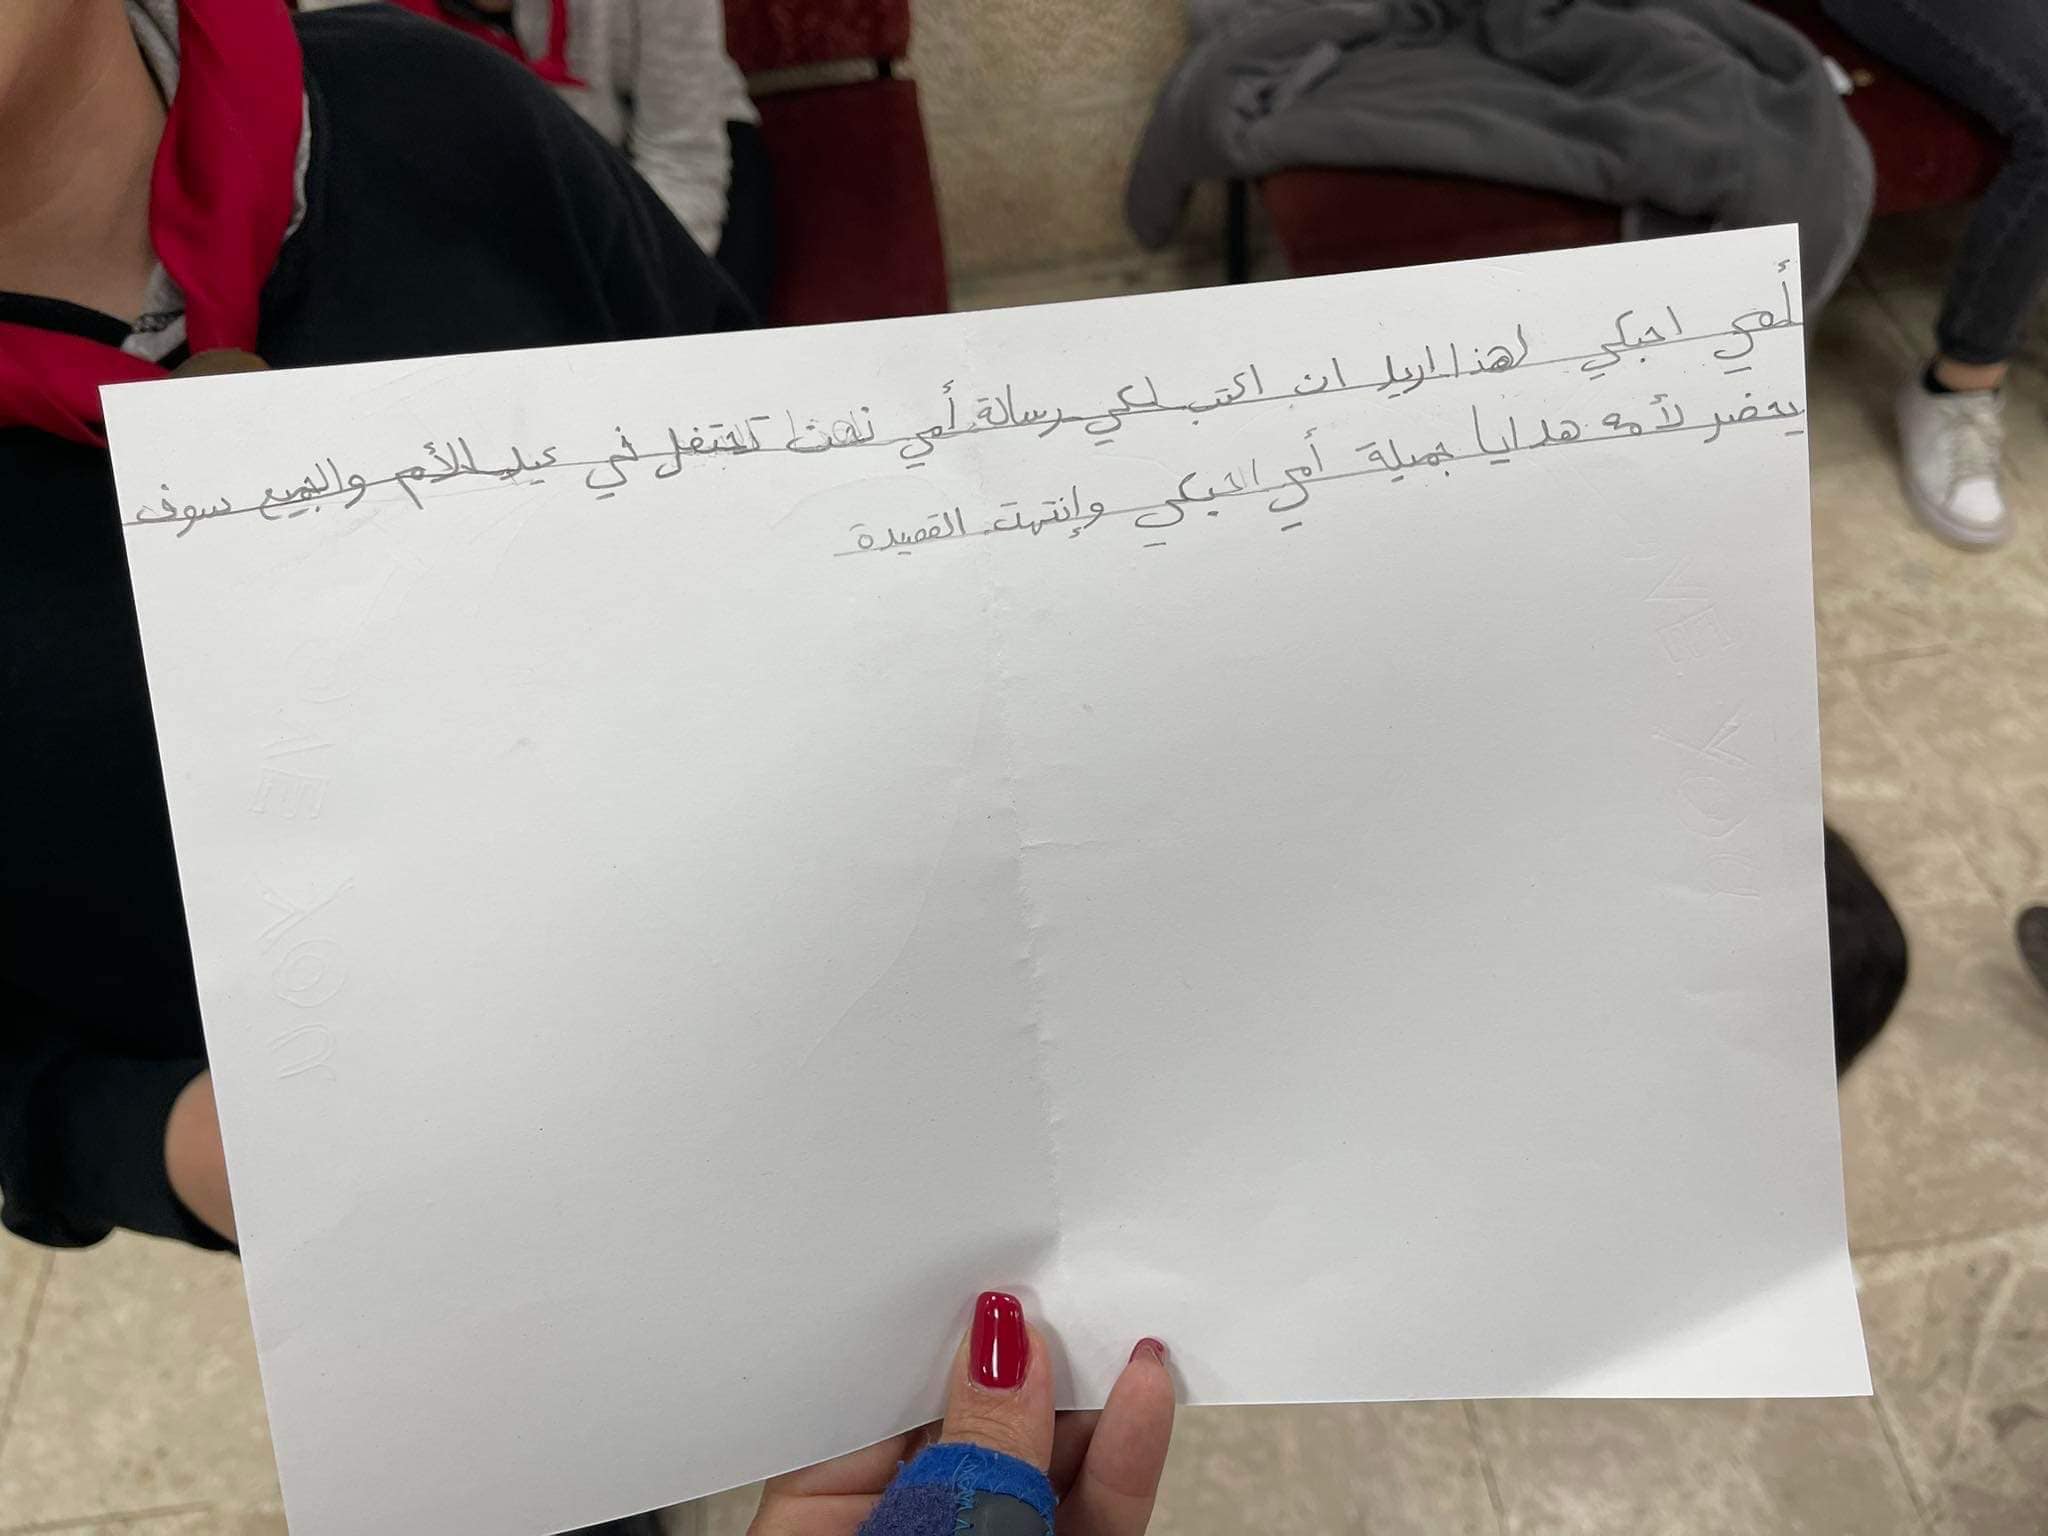 أمي احبكي لهذا اريد ان اكتب لكي رسالة أمي نحن نحتفل في عيد الأم والجميع سوف
يحضر لأمه هدايا جميلة أمي احبكي وإنتهت القصيدة
LOVE YOU
LOVE YOU